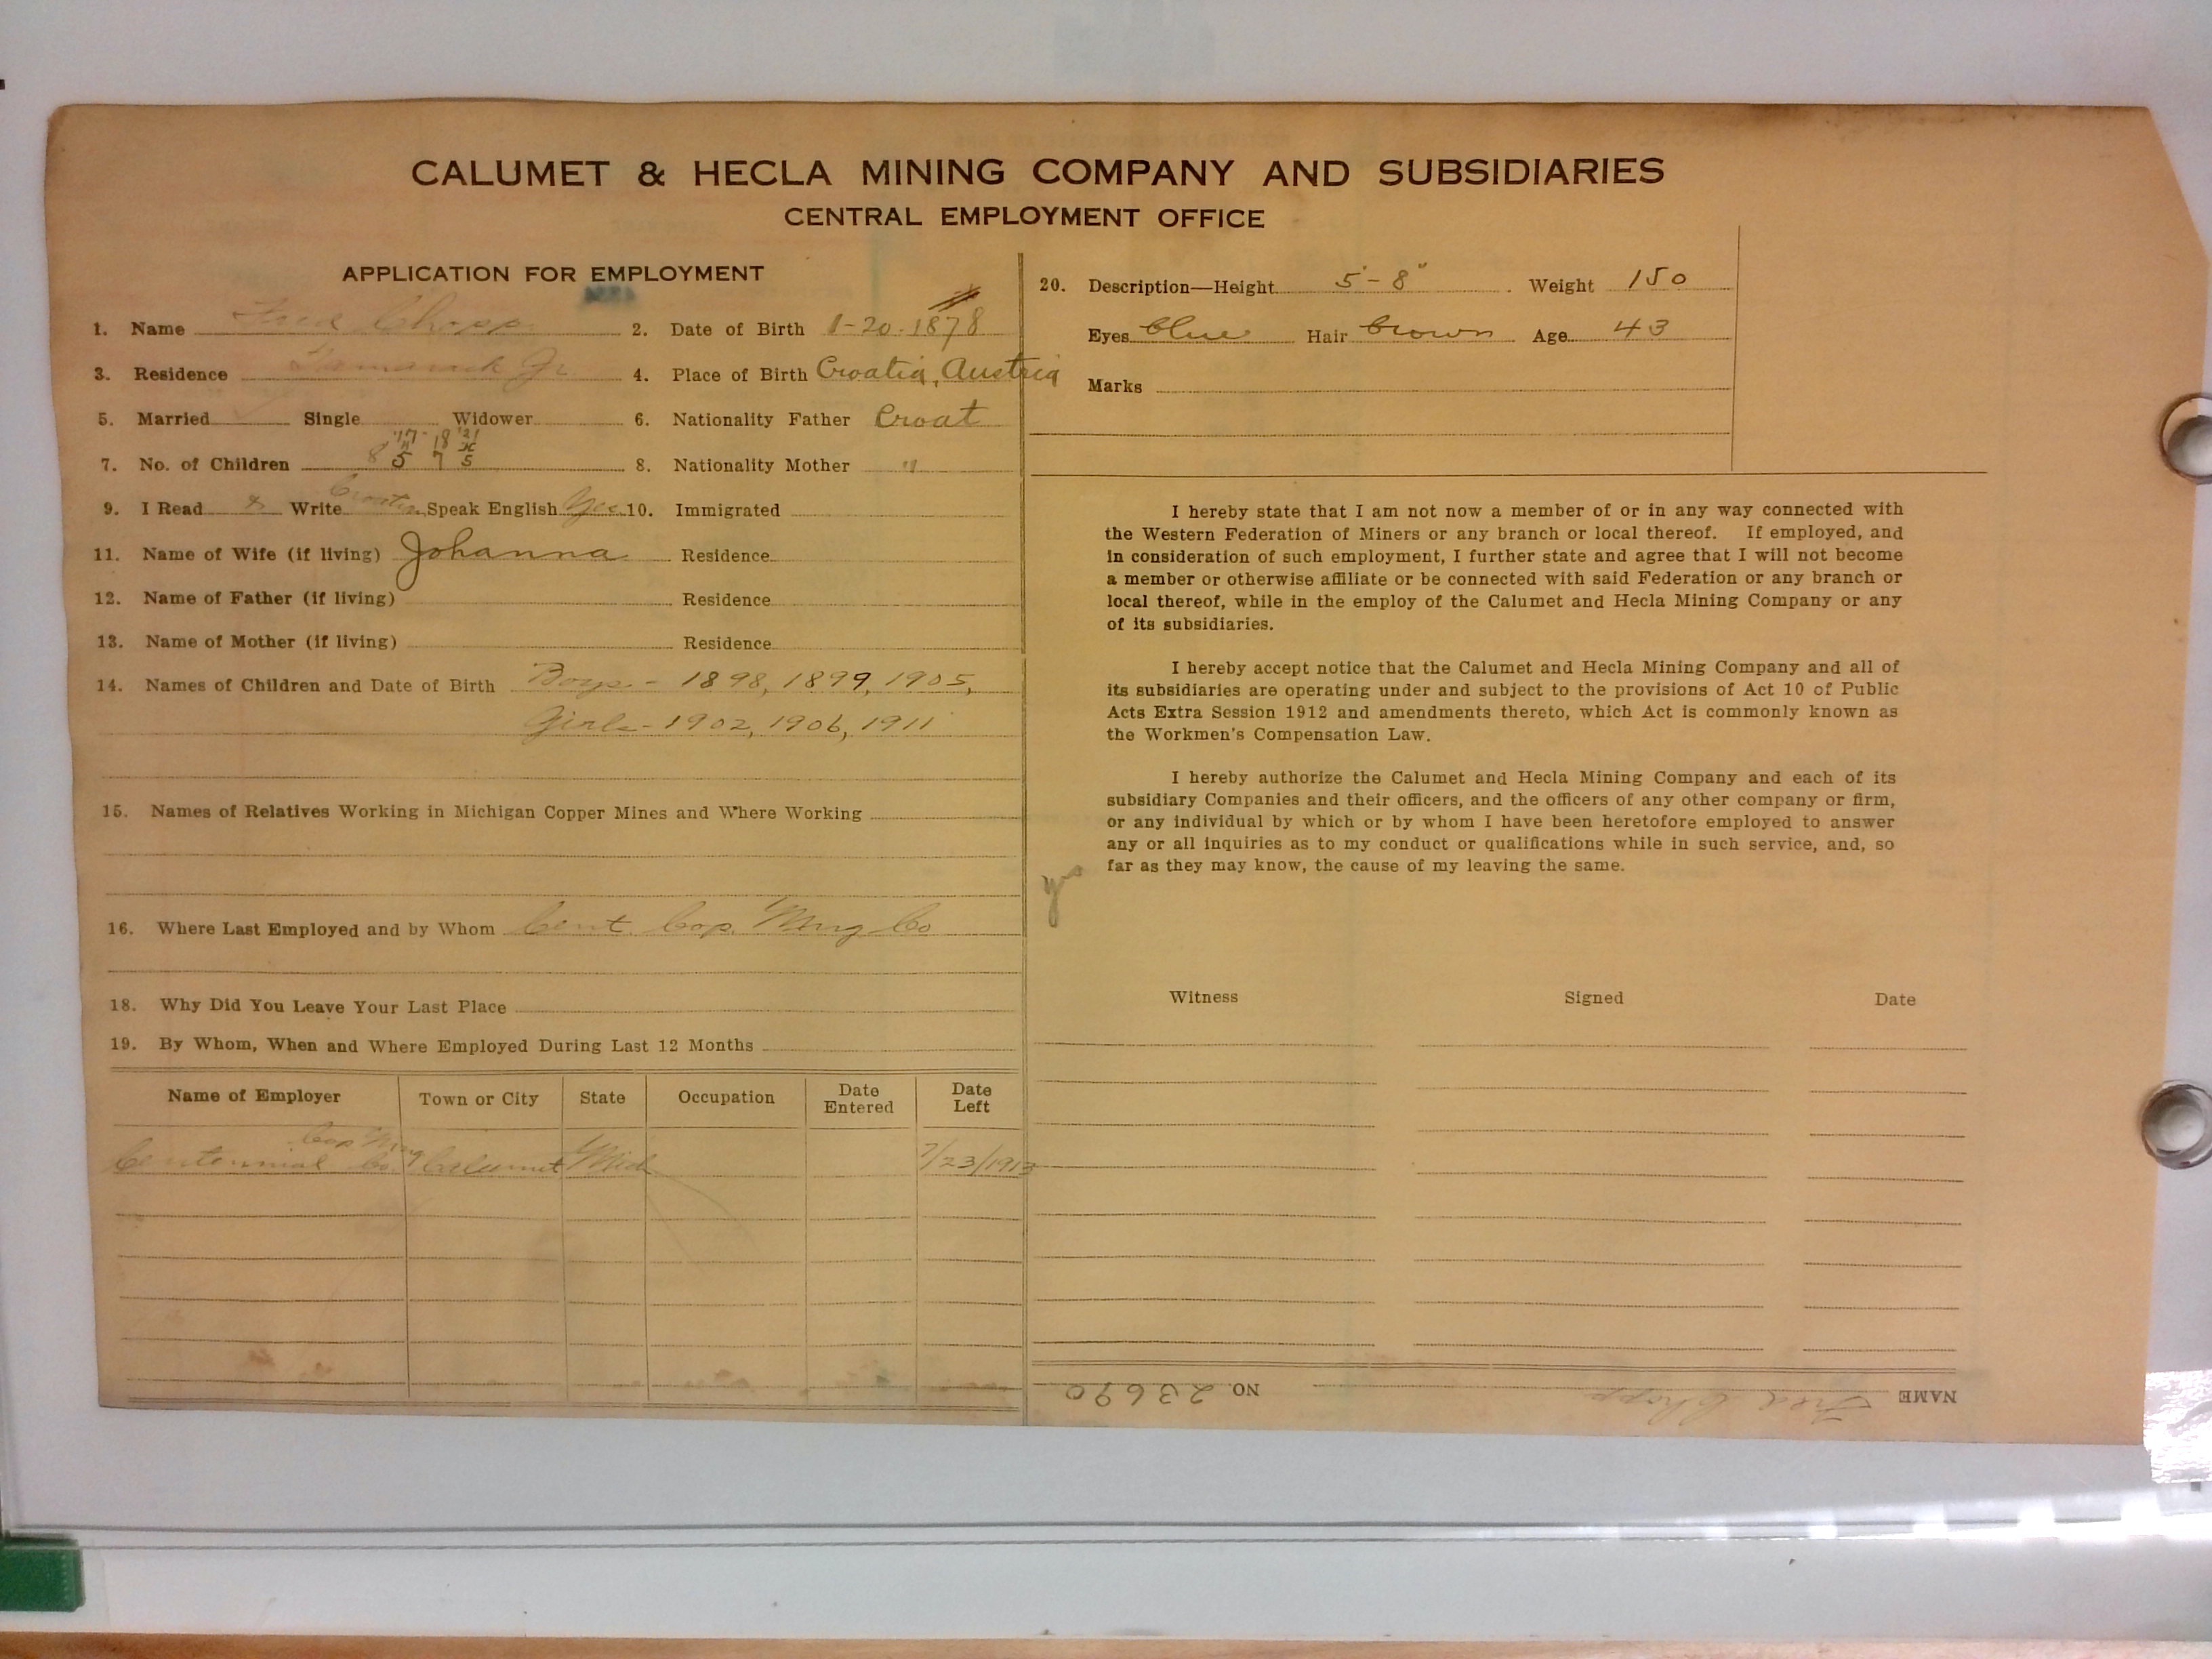 CALUMET & HECLA MINING COMPANY AND SUBSIDIARIES
CENTRAL EMPLOYMENT OFFICE
APPLICATION FOR EMPLOYMENT
1. Name Fred Chopp 2. Date of Birth 1-20-1878
3. Residence Tamarack Jr 4. Place of Birth Croatia, Austria
5. Married Single Widower 6. Nationality Father Croat
'17 - 18 '21
7. No. of Children 8 5 7 5 8. Nationality Mother "
9. I Read & Write Croatian Speak English Yes 10. Immigrated
11. Name of Wife (if living) Johanna Residence
12. Name of Father (if living) Residence
13. Name of Mother (if living) Residence
14. Names of Children and Date of Birth Boys - 1898, 1899, 1905,
Girls - 1902, 1906, 1911
15. Names of Relatives Working in Michigan Copper Mines and Where Working
16. Where Last Employed and by Whom Cent. Cop. Mng Co
18. Why Did You Leave Your Last Place
19. By Whom, When and Where Employed During Last 12 Months
Name of Employer Town or City State Occupation Date Entered Date Left
Centennial Cop Mng Co. Calumet Mich 7/23/1913
20. Description—Height 5'-8" Weight 150
Eyes blue Hair brown Age 43
Marks
I hereby state that I am not now a member of or in any way connected with
the Western Federation of Miners or any branch or local thereof. If employed, and
in consideration of such employment, I further state and agree that I will not become
a member or otherwise affiliate or be connected with said Federation or any branch or
local thereof, while in the employ of the Calumet and Hecla Mining Company or any
of its subsidiaries.
I hereby accept notice that the Calumet and Hecla Mining Company and all of
its subsidiaries are operating under and subject to the provisions of Act 10 of Public
Acts Extra Session 1912 and amendments thereto, which Act is commonly known as
the Workmen's Compensation Law.
I hereby authorize the Calumet and Hecla Mining Company and each of its
subsidiary Companies and their officers, and the officers of any other company or firm,
or any individual by which or by whom I have been heretofore employed to answer
any or all inquiries as to my conduct or qualifications while in such service, and, so
far as they may know, the cause of my leaving the same.
Witness Signed Date
NAME Fred Chopp NO 23690